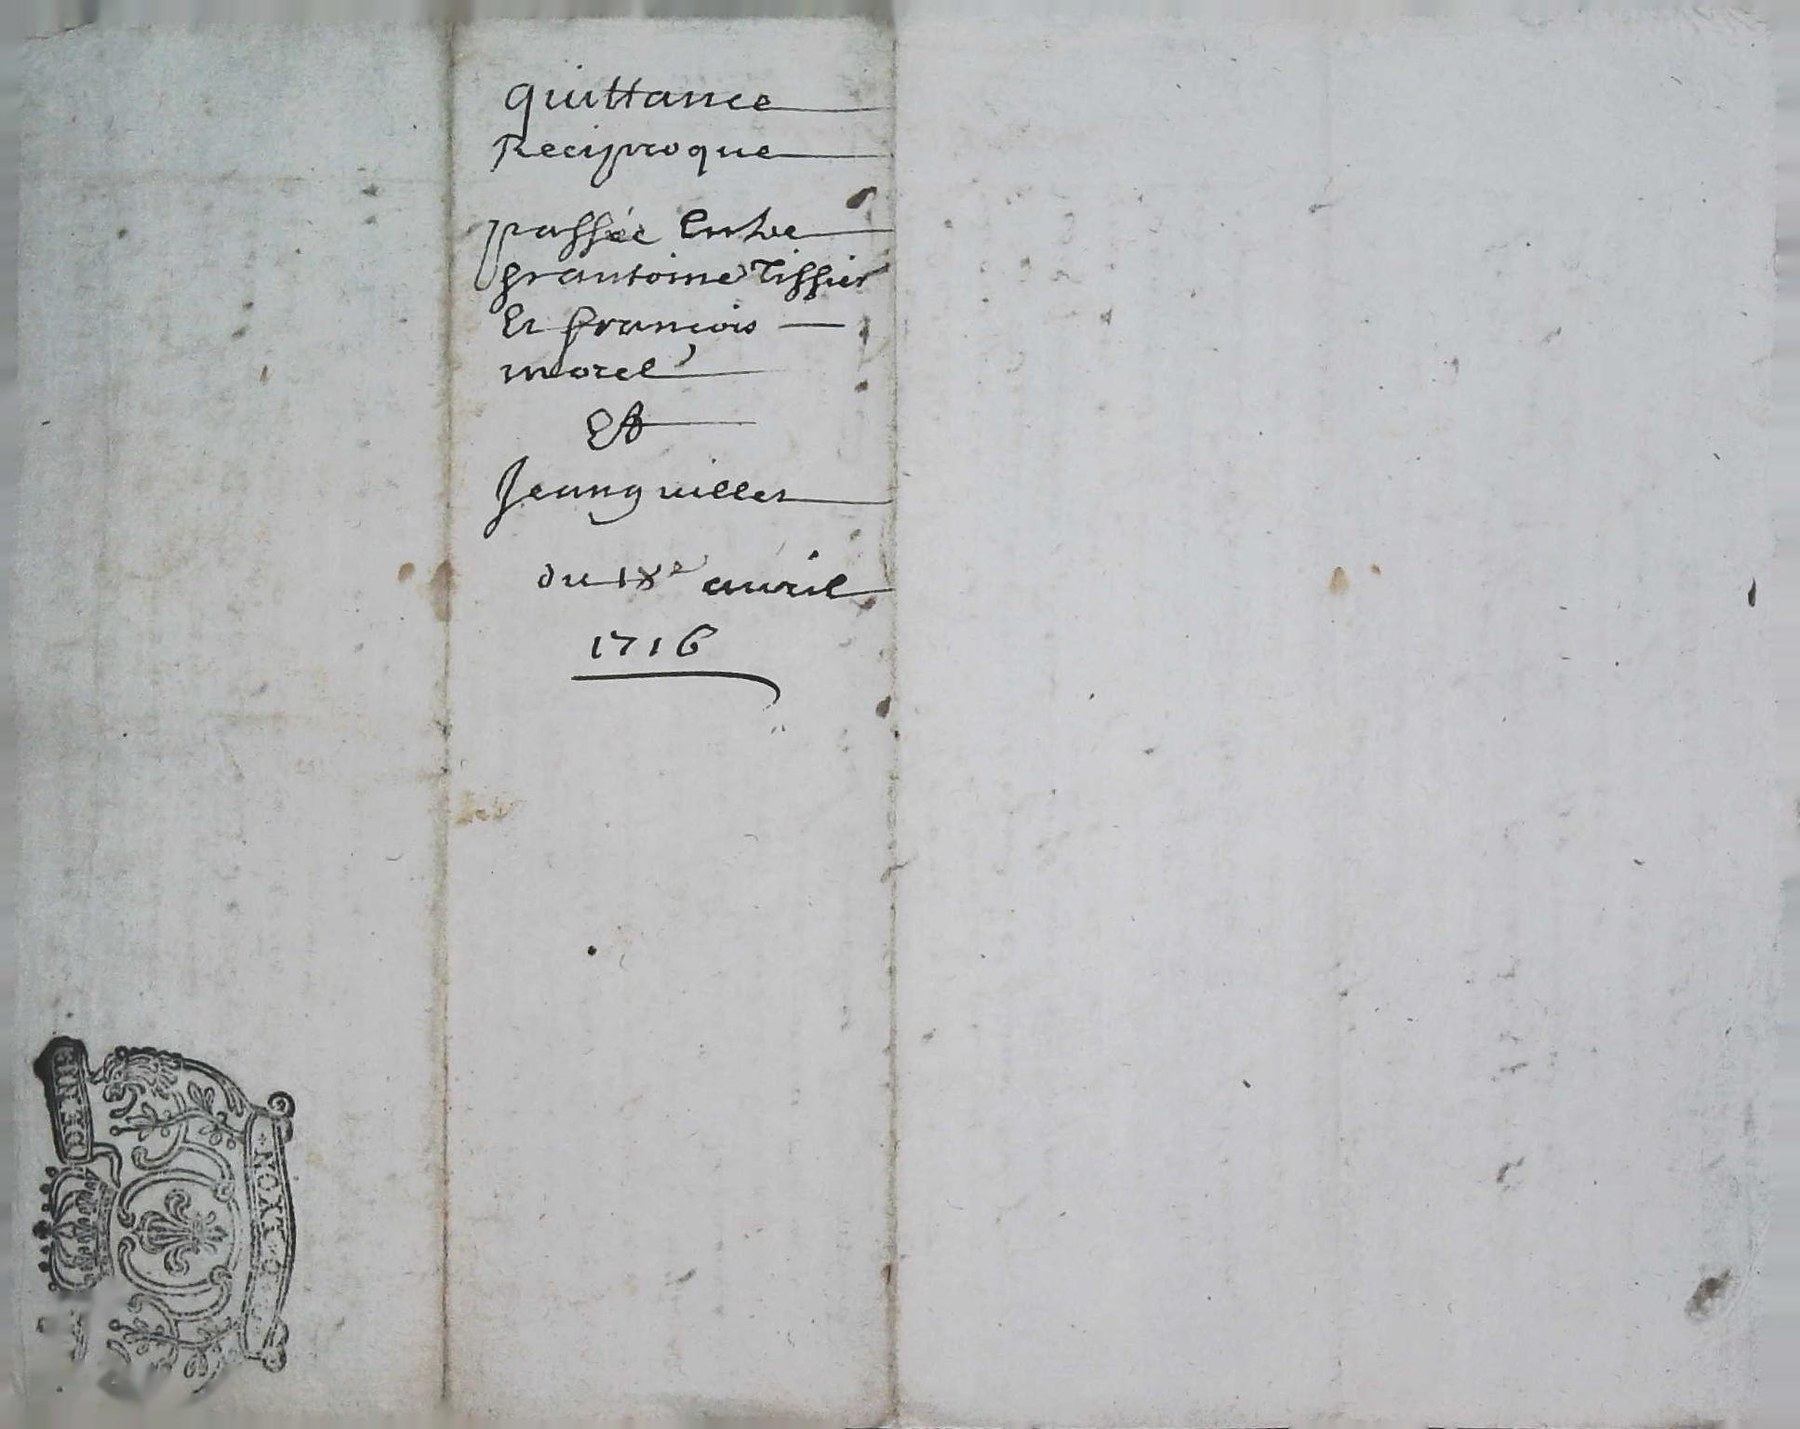 quittance
Reciproque
passée Entre
sr antoine Tissier
Et françois
morel
Et
Jean guillet
du 18e avril
1716
DE NIE